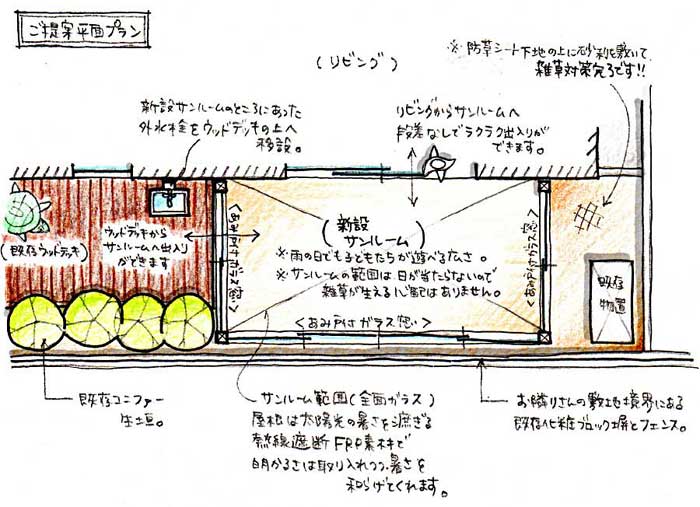 ご提案平面プラン
(リビング)
※防草シート下地の上に砂利を敷いて
雑草対策完了です!!
新設サンルームのところにあった
外水栓をウッドデッキの上へ
移設。
リビングからサンルームへ
段差なしでラクラク出入りが
できます。
(既存ウッドデッキ)
ウッドデッキから
サンルームへ出入り
ができます
<あみ戸付ガラス窓>
(新設
サンルーム)
※雨の日でも子どもたちが遊べる広さ。
※サンルームの範囲は日が当たらないので
雑草が生える心配はありません。
<あみ戸付ガラス窓>
<あみ戸付ガラス窓>
既存
物置
既存コニファー
生垣。
サンルーム範囲(全面ガラス)
屋根は太陽光の暑さを遮ぎる
熱線遮断FRP素材で
明かるさは取り入れつつ、暑さを
和らげてくれます。
お隣りさんの敷地境界にある
既存化粧ブロック塀とフェンス。